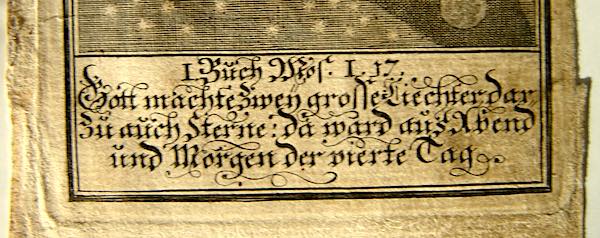 I. Buch Mos. I. 17.
Gott machte zwey grosse Liechter dar,
zu auch Sterne: da ward aus Abend
und Morgen der vierte Tag.